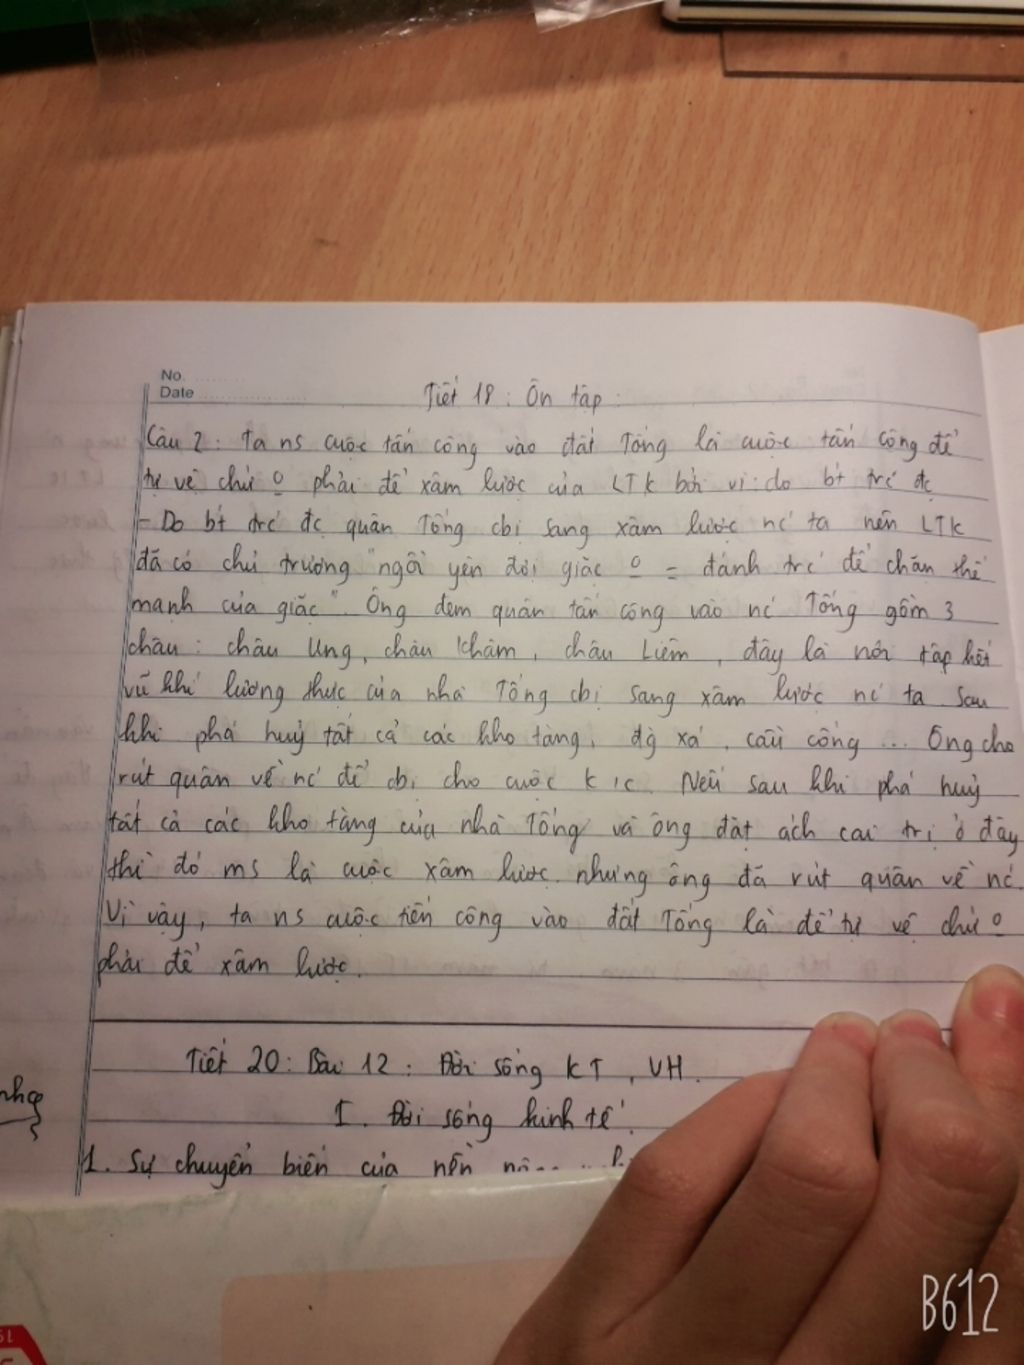 No.
Date
Tiết 18: Ôn tập:
Câu 2: Ta ns cuộc tấn công vào đất Tống là cuộc tấn công để
tự vệ chứ o phải để xâm lược của LTK bởi vì: do bt trc đc
- Do bt trc đc quân Tống cbị sang xâm lược nc ta nên LTK
đã có chủ trương "ngồi yên đợi giặc o = đánh trc để chặn thế
mạnh của giặc". Ông đem quân tấn công vào nc Tống gồm 3
châu: châu Ung, châu Khâm, châu Liêm, đây là nơi tập kết
vũ khí lương thực của nhà Tống cbị sang xâm lược nc ta. Sau
khi phá huỷ tất cả các kho tàng, đg xá, cầu cống ... Ông cho
rút quân về nc để cbị cho cuộc k/c. Nếu sau khi phá huỷ
tất cả các kho tàng của nhà Tống và ông đặt ách cai trị ở đây
thì đó ms là cuộc xâm lược. nhưng ông đã rút quân về nc.
Vì vậy, ta ns cuộc tiến công vào đất Tống là để tự vệ chứ o
phải để xâm lược.
Tiết 20: Bài 12: Đời sống KT, VH.
I. Đời sống kinh tế.
1. Sự chuyển biến của nền
B612